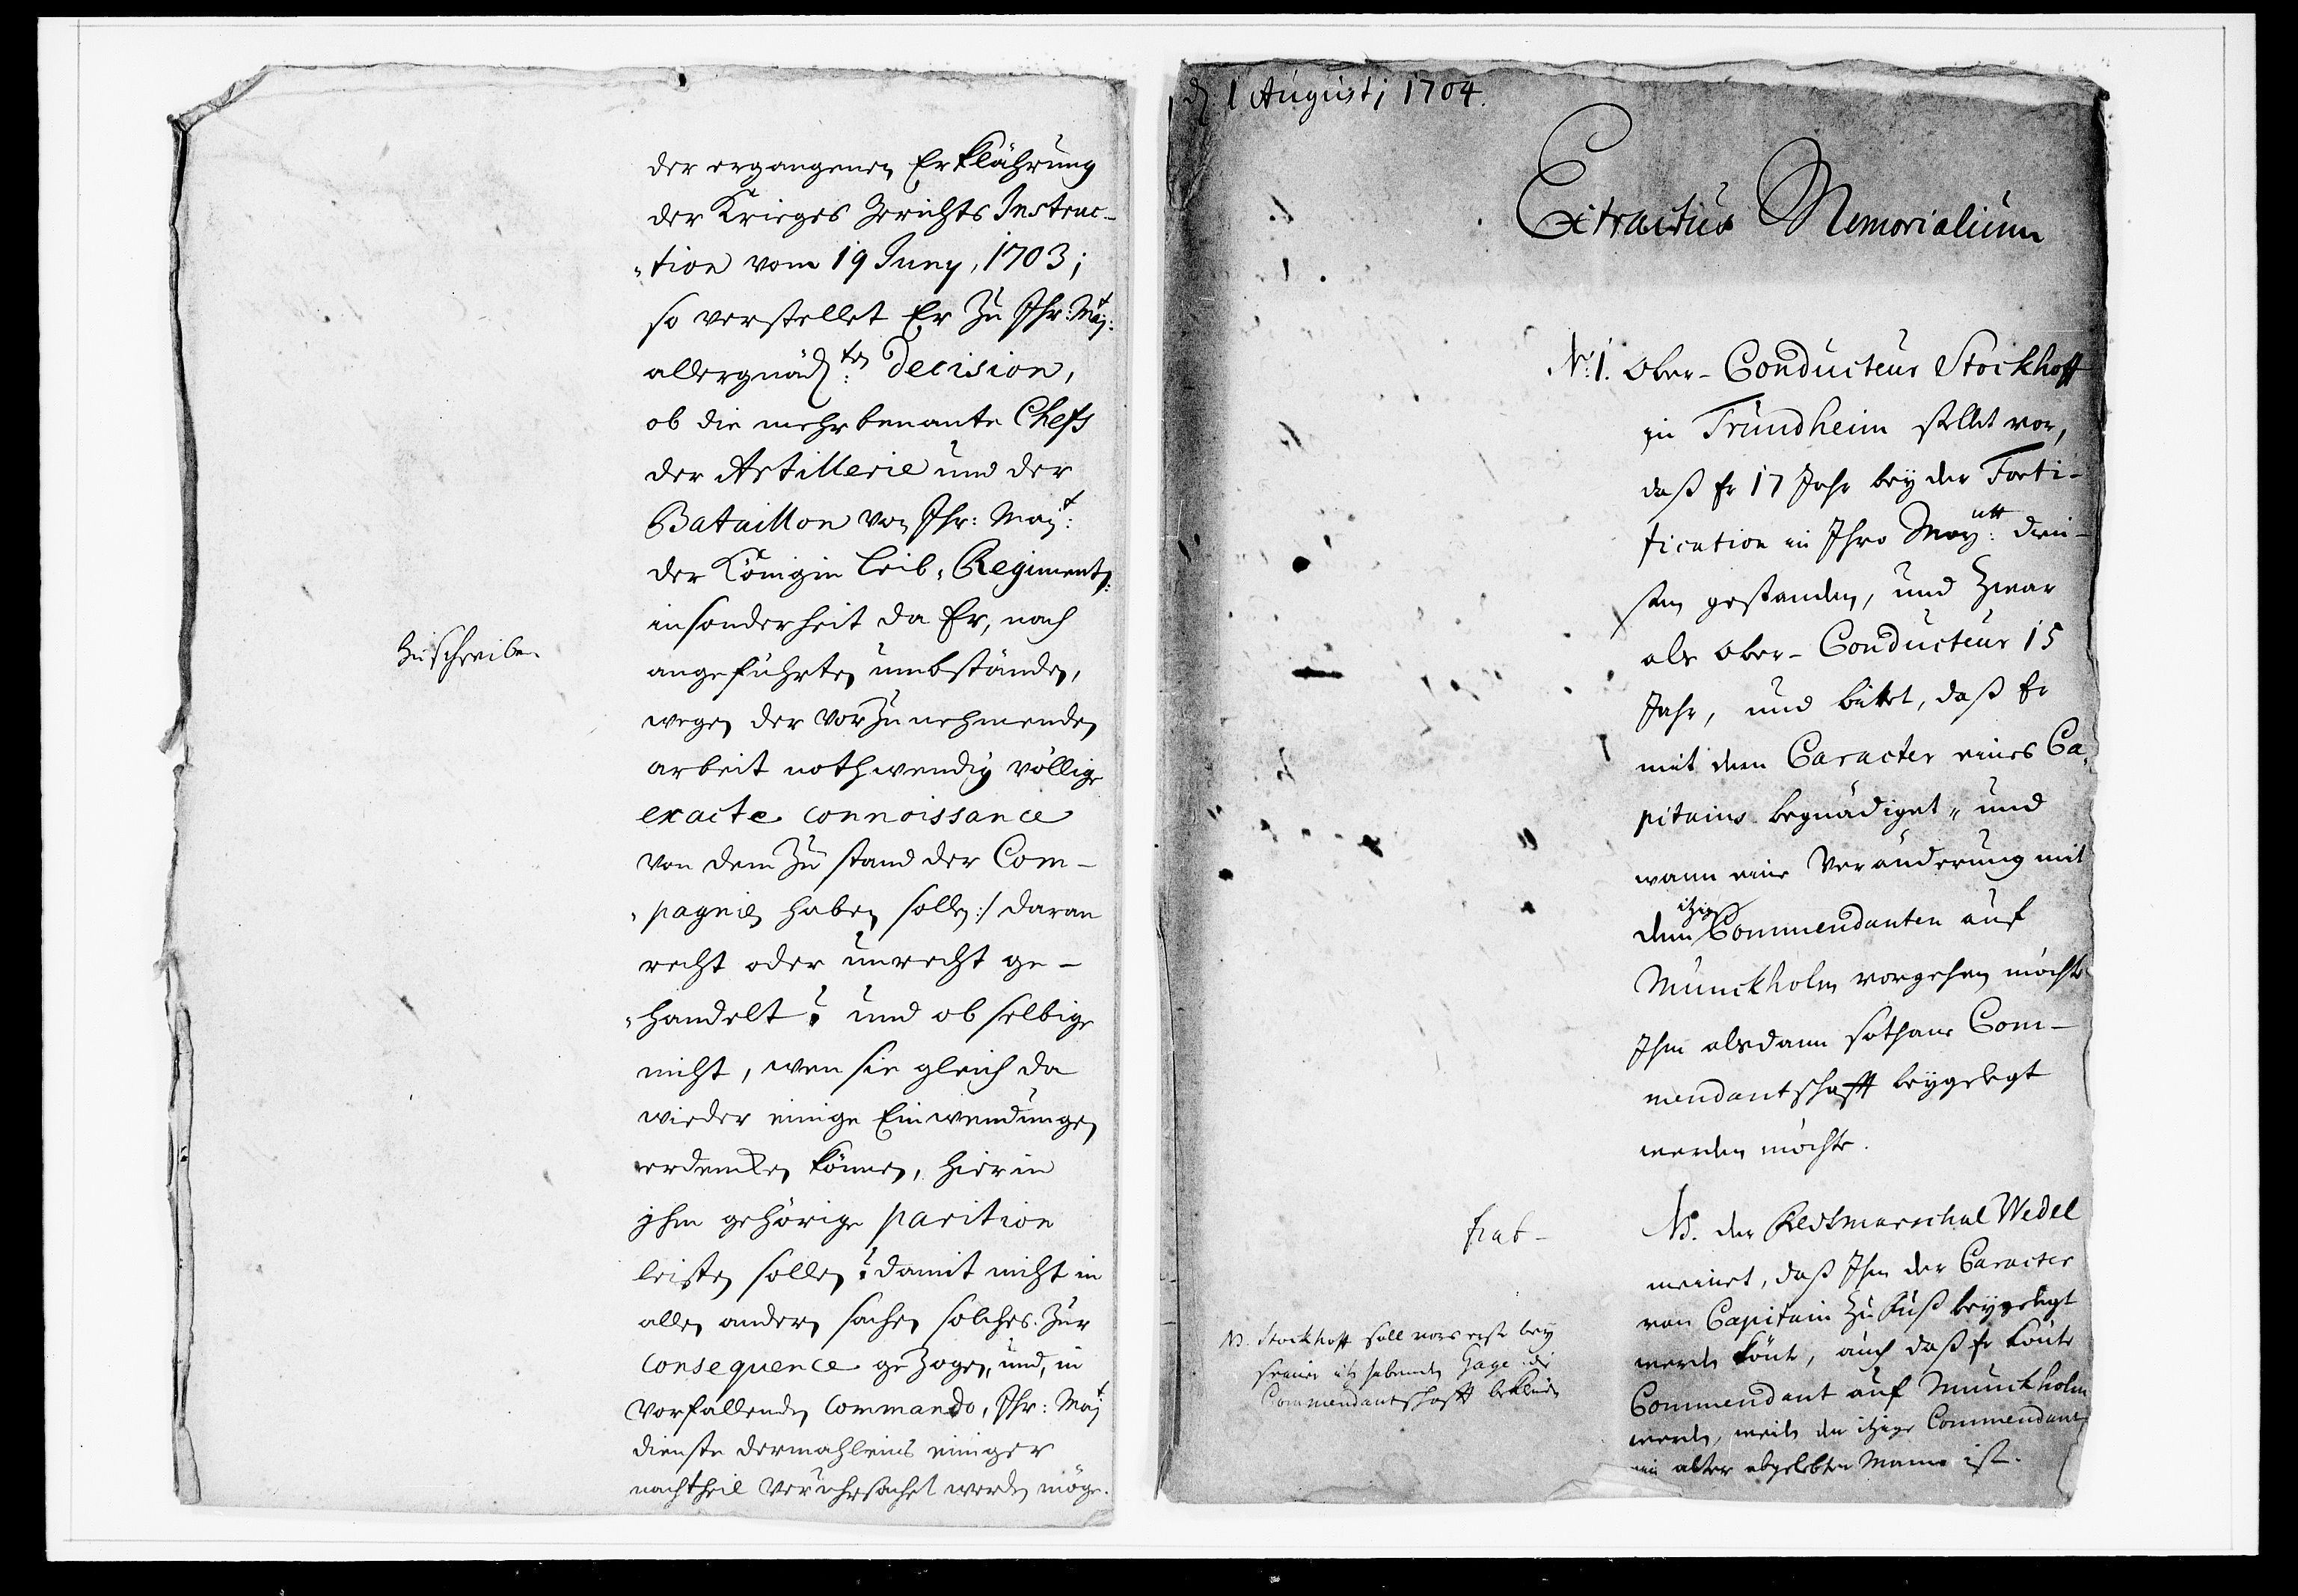 der ergangenen Erklährung
der Krieges Gerichts Instruc-
-tion vom 19 Juny, 1703;
so verstellet Er Zu Ihr: Maj:t
allergnäd:ten Decision,
ob die mehrbenante Chefs
der Artillerie und der
Bataillon von Ihr: Maj:t
der Königin Leib-Regiment:
insonderheit da Er, nach
zu schreiben
angeführten umbständen,
wegen der vorzunehmenden
arbeit nothwendig völlige
exacte connoissance
von dem Zustand der Com-
-pagnien haben sollen :/ daran
recht oder unrecht ge-
-handelt? und ob selbige
nicht, wen sie gleich da
wieder einige Einwendungen
erdencken können, hierin
jhm gehörige parition
leisten sollen? damit nicht in
allen andern sachen solches zur
consequence gezogen, und, in
vorfallenden commando, Ihr: Maj:t
dienste dermahleins einiger
nachtheil veruhrsachet werden möge.
d. 1 Augusti 1704.
Extractus Memorialium
N: 1. Ober-Conducteur Stockhoff
in Trundheim stellet vor,
daß Er 17 Jahr bey der Forti-
fication in Ihro May:tt dien-
sten gestanden, und zwar
als Ober-Conducteur 15
Jahr, und bittet, daß Er
mit dem Caracter eines Ca-
pitains begnädiget, und
wann eine Veränderung mit
dem itzigen Commendanten auf
Munckholm vorgehen möchte
Ihm alsdann sothane Com-
mendantschafft beygelegt
werden möchte.
fiat-
NB. der Feldtmarschal Wedel
meinet, daß Ihm der Caracter
von Capitain zu Fuß beygelegt
werden könte, auch daß Er könte
Commendant auf Munckholm
werden, weiln der itzige Commendant
ein alter abgelebter Mann ist.
NB. Stockhoff soll vors erste bey
seiner itz habenden Gage die
Commendantschafft bekleiden